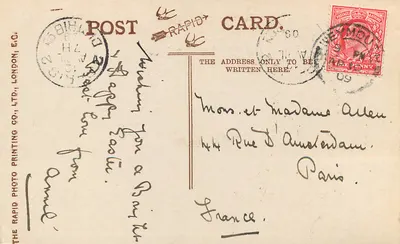 POST CARD.
RAPID
THE ADDRESS ONLY TO BE
WRITTEN HERE.
THE RAPID PHOTO PRINTING CO., LTD., LONDON, E.C.
Wishing you a Bright
& Happy Easter.
Best love from
Annie
Mons. et Madame Allan
44 Rue D'Amsterdam.
Paris.
France.
09